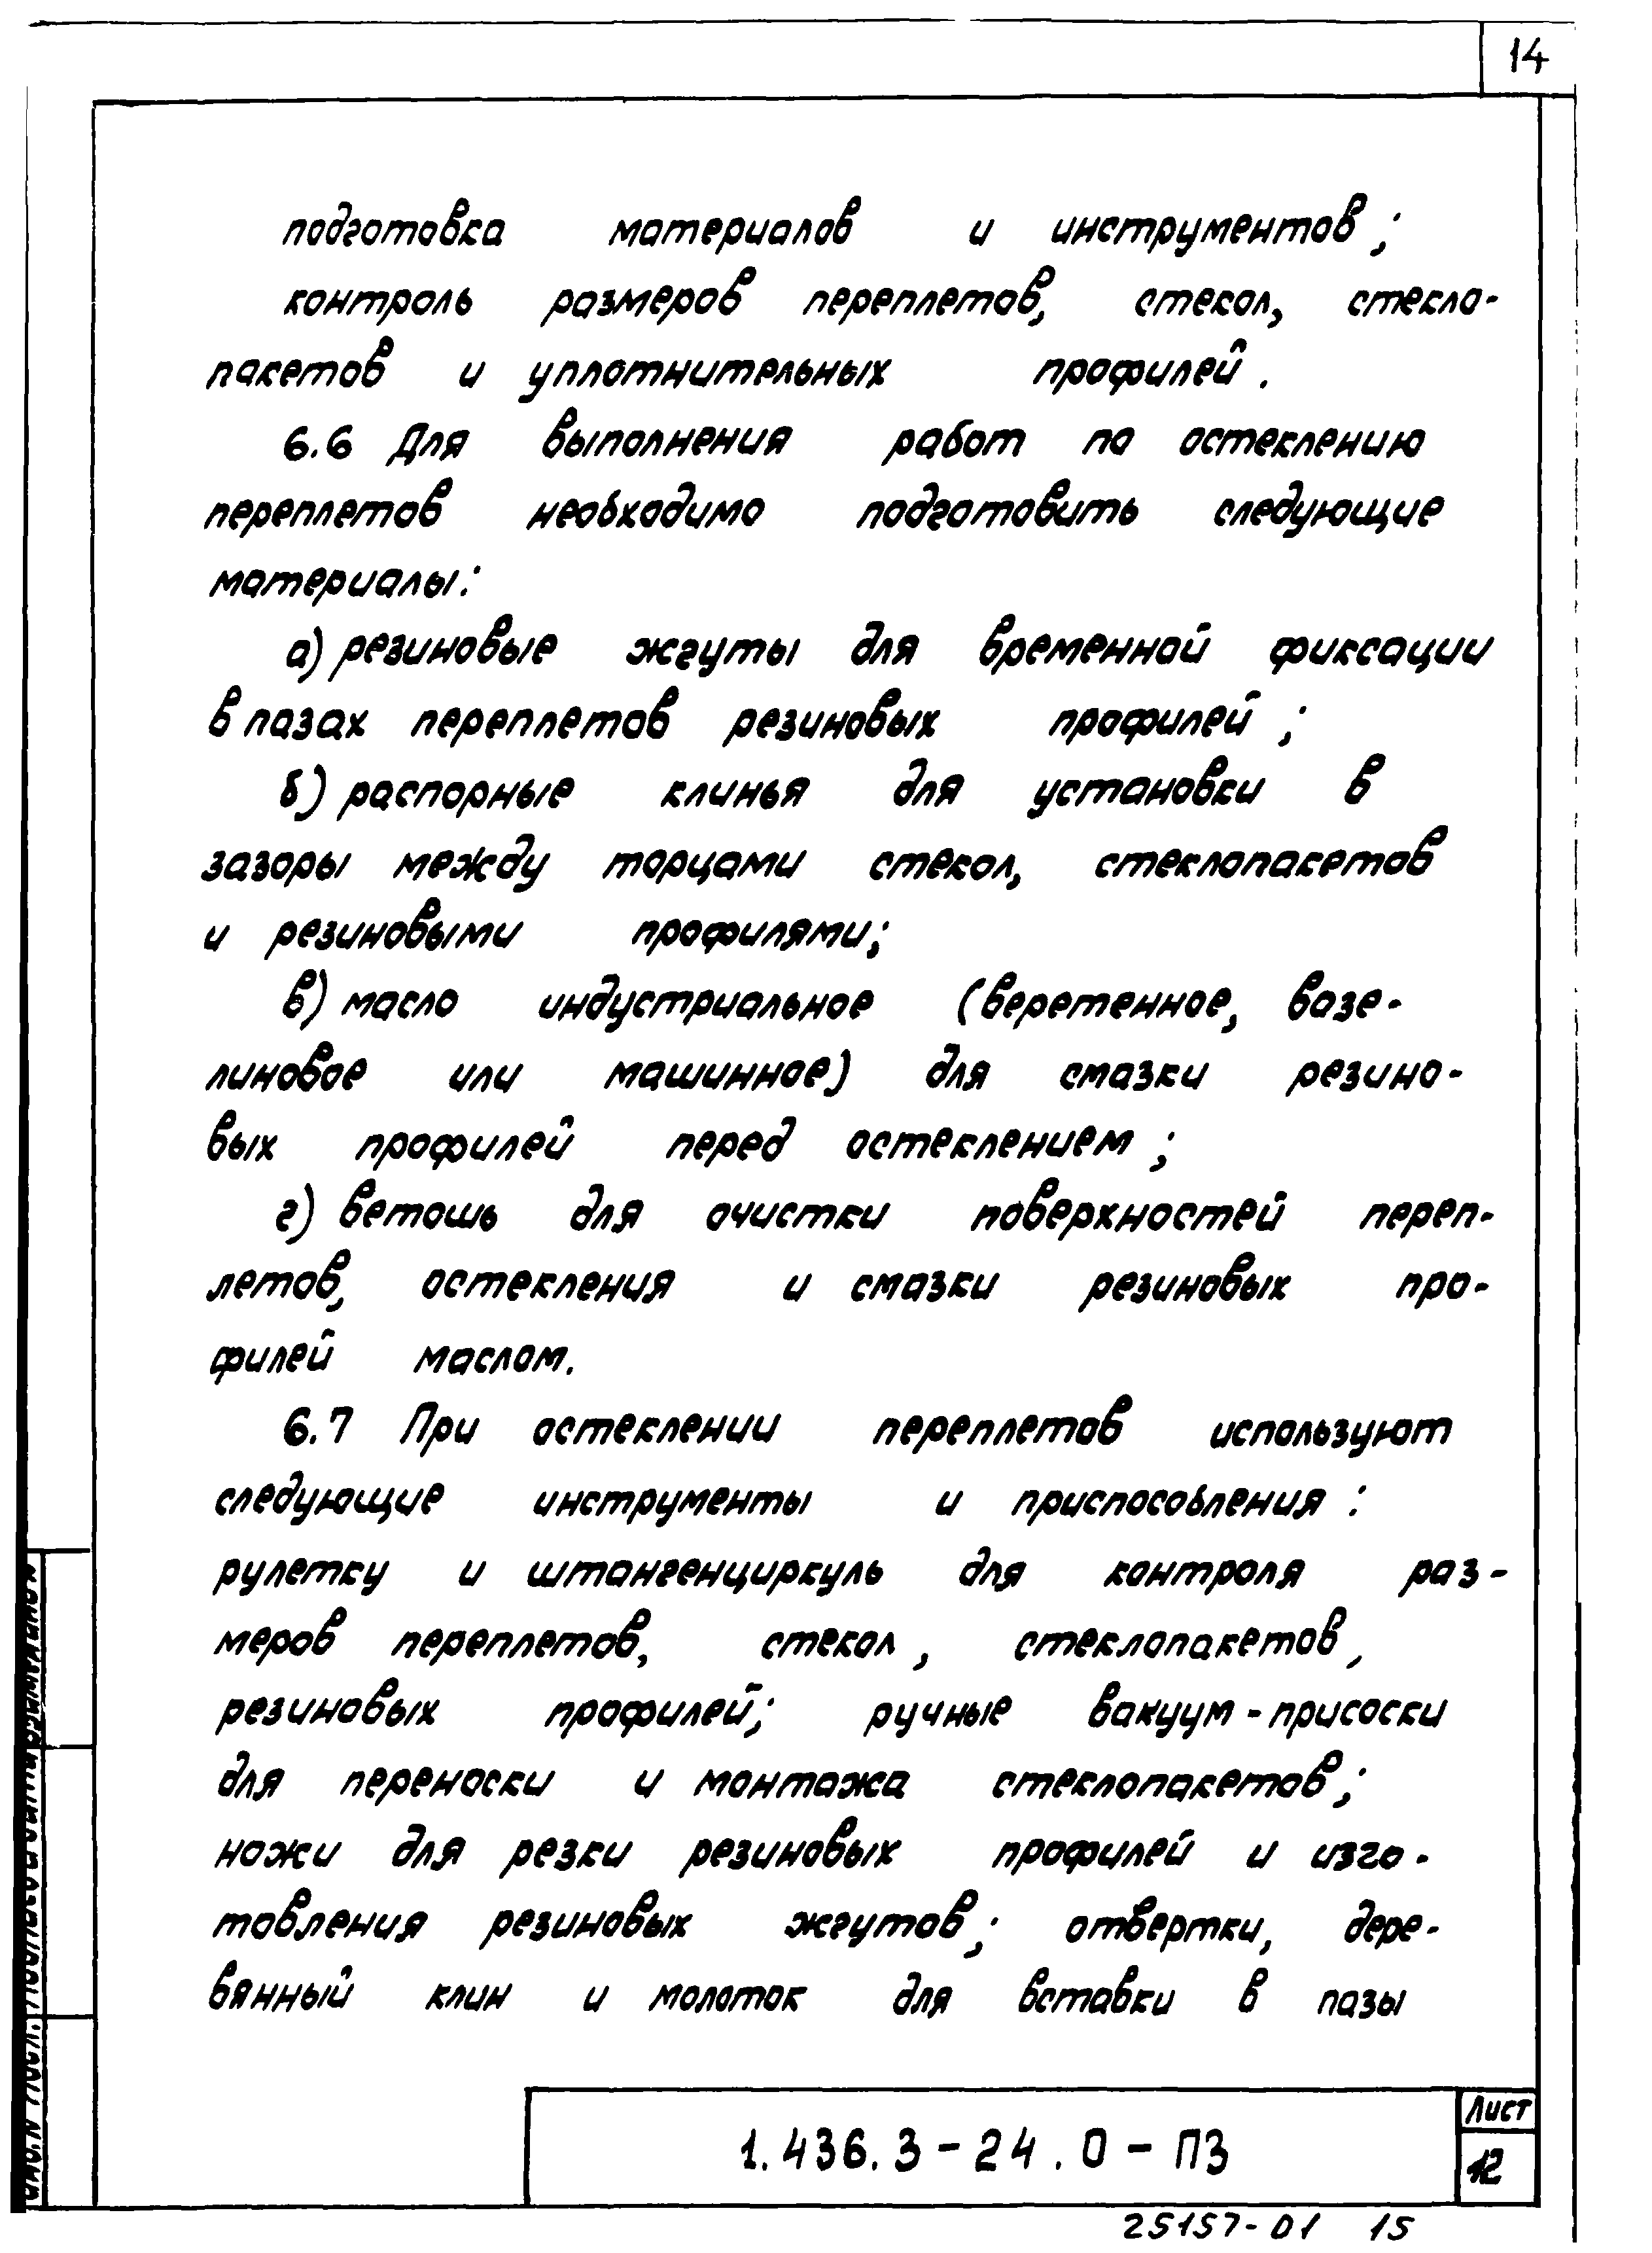 14
подготовка материалов и инструментов;
контроль размеров переплетов, стекол, стекло-
пакетов и уплотнительных профилей.
6.6 Для выполнения работ по остеклению
переплетов необходимо подготовить следующие
материалы:
а) резиновые жгуты для временной фиксации
в пазах переплетов резиновых профилей;
б) распорные клинья для установки в
зазоры между торцами стекол, стеклопакетов
и резиновыми профилями;
в) масло индустриальное (веретенное, вазе-
линовое или машинное) для смазки резино-
вых профилей перед остеклением;
г) ветошь для очистки поверхностей переп-
летов, остекления и смазки резиновых про-
филей маслом.
6.7 При остеклении переплетов используют
следующие инструменты и приспособления:
рулетку и штангенциркуль для контроля раз-
меров переплетов, стекол, стеклопакетов,
резиновых профилей; ручные вакуум-присоски
для переноски и монтажа стеклопакетов;
ножи для резки резиновых профилей и изго-
товления резиновых жгутов; отвертки, дере-
вянный клин и молоток для вставки в пазы
1.436.3-24.0-ПЗ
Лист
12
25157-01 15